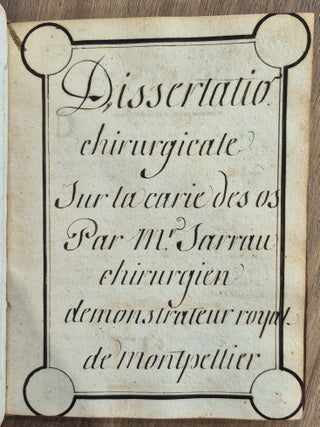 Dissertatio
chirurgicale
Sur la carie des os
Par Mr. Sarrau
chirurgien
demonstrateur royal
de montpellier